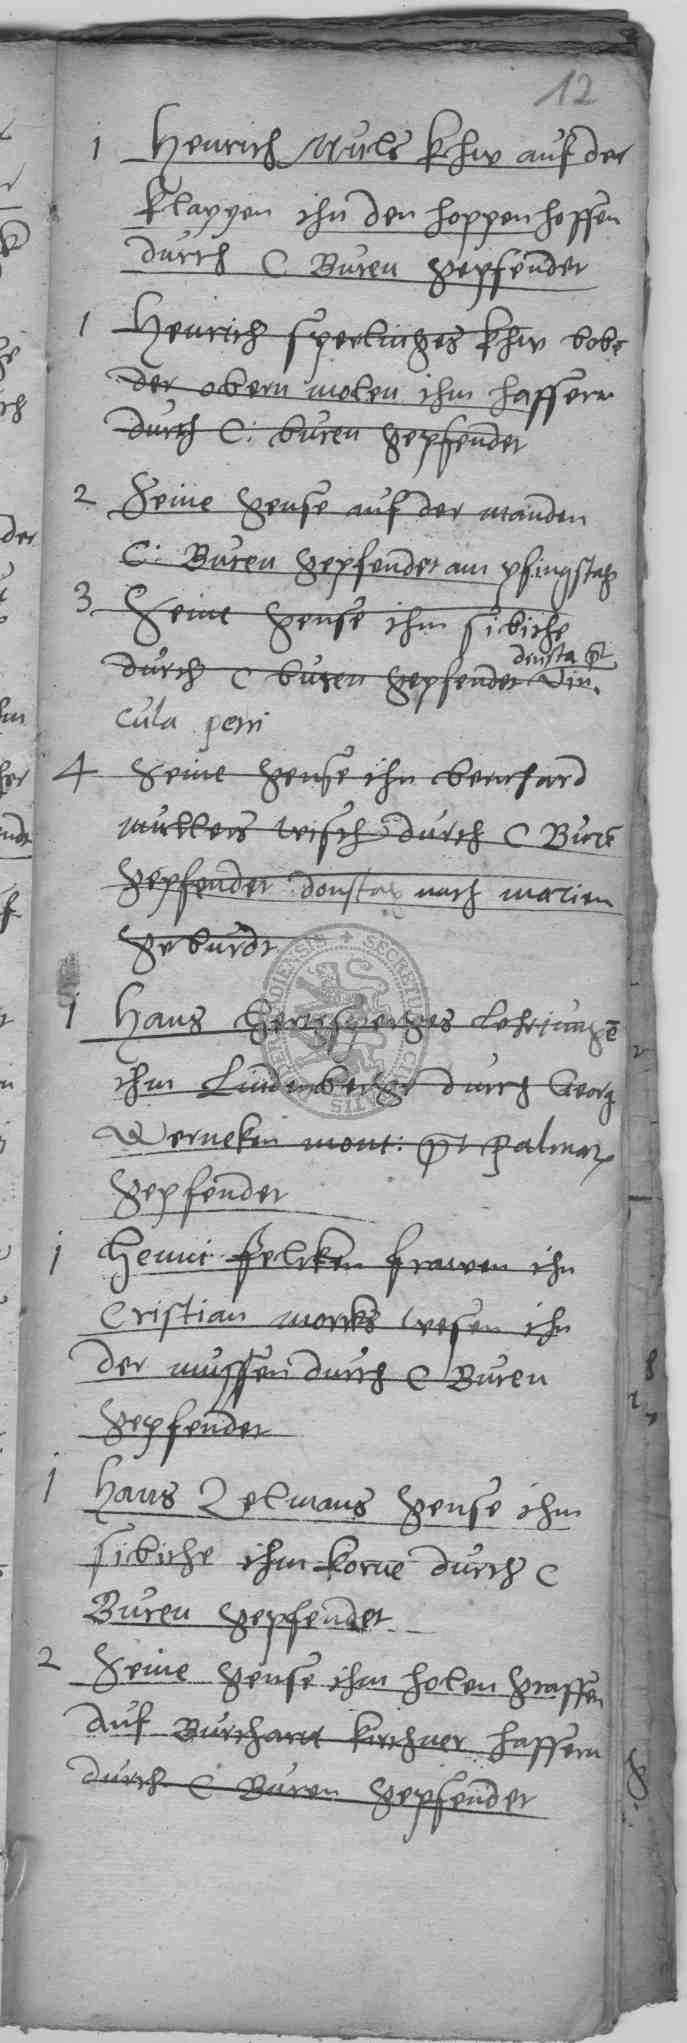 12
1 Henrich Muls khw auf der
klappen ihn den hoppenhoffen
durch C Buren gepfendet
1 Henrich sperlinges khw bobe
der obern molen ihm haffern
durch C: buren gepfendet
2 Seine gense auf der manden
C: Buren gepfendet am pfingstag
3 Seine gense ihm sikiche
durch C buren gepfendet donsta pt Vin
cula petri
4 Seine gense ihn bernhard
mullers wisch durch C Bure
gepfendet donstag nach marien
geburdt
1 Hans lehrjunge
ihm Lindenberge durch Georg
Werneken mont: pt palmar
gepfendet
1 Henni felcken frawen ihn
Cristian morcks wesen ihn
der mussen durch C Buren
gepfendet
1 Hans Zelmans gense ihm
sikiche ihm korne durch C
Buren gepfendet
2 Seine gense ihm holen graffen
auf Burchart kirchner haffern
durch C Buren gepfendet
SECRETU